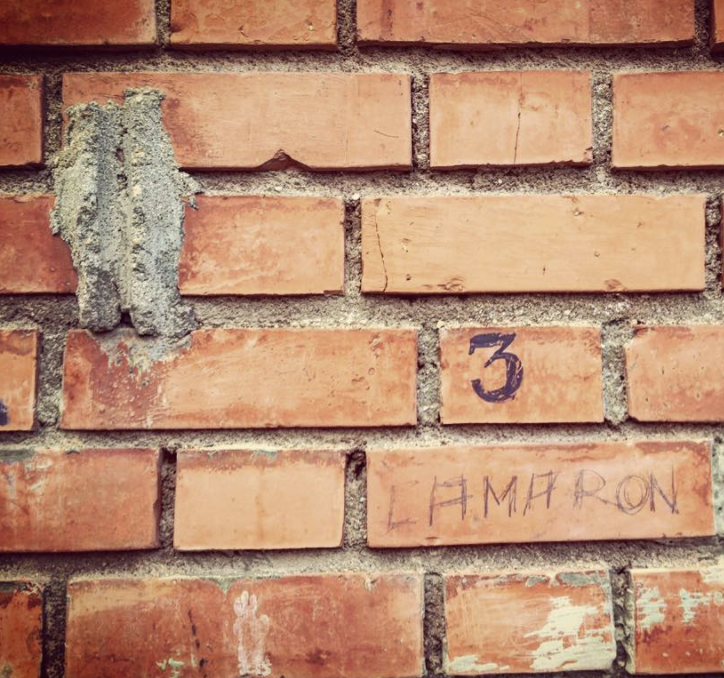 3
LAMARON